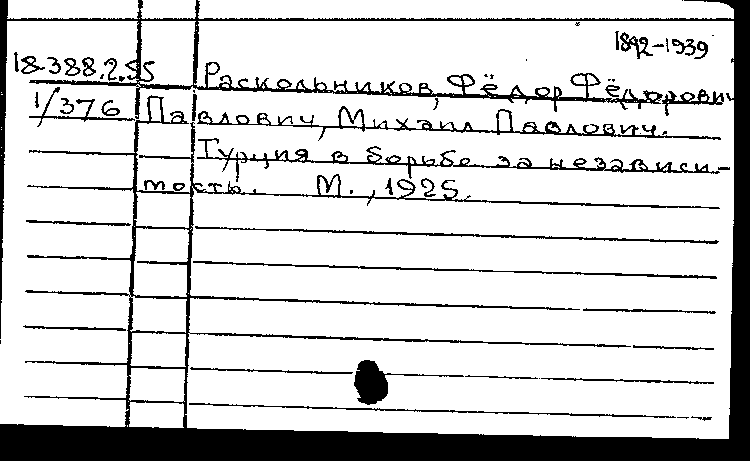 1892-1939
18-388.2.55 Раскольников, Фёдор Фёдорович
1/376 Павлович, Михаил Павлович.
Турция в борьбе за независи-
мость. М., 1925.